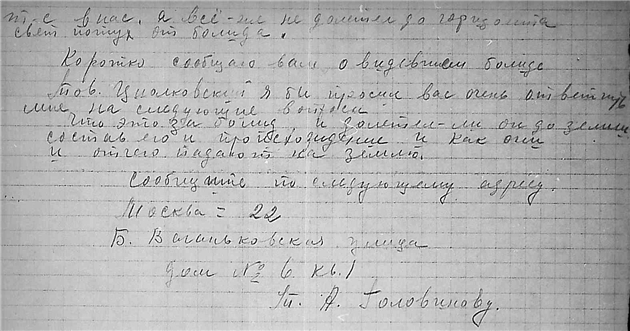 т-с в нас. а всё-же не долетел до горизонта
свет потух от болида.
Коротко сообщаю вам о виденном болиде
Тов. Циолковский я бы просил вас очень ответить
мне на следующие вопросы
Что это за болид, и долетел-ли он до земли
состав его и происхождение и как они
и отчего падают на землю.
Сообщите по следующему адресу.
Москва = 22
Б. Ваганьковская улица
дом № 6 кв. 1
т. А. Головинову.